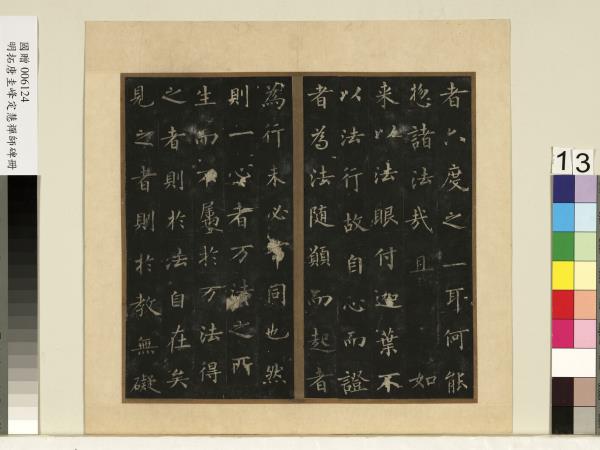 者六度之一耳何能
惣諸法哉且如
来以法眼付迦葉不
以法行故自心而證
者為法随願而起者
為行未必常同也然
則一心者万法之所
生而不属於万法得
之者則於法自在矣
見之者則於教無礙
國贈 006124
明拓唐圭峰定慧禪師碑冊
13